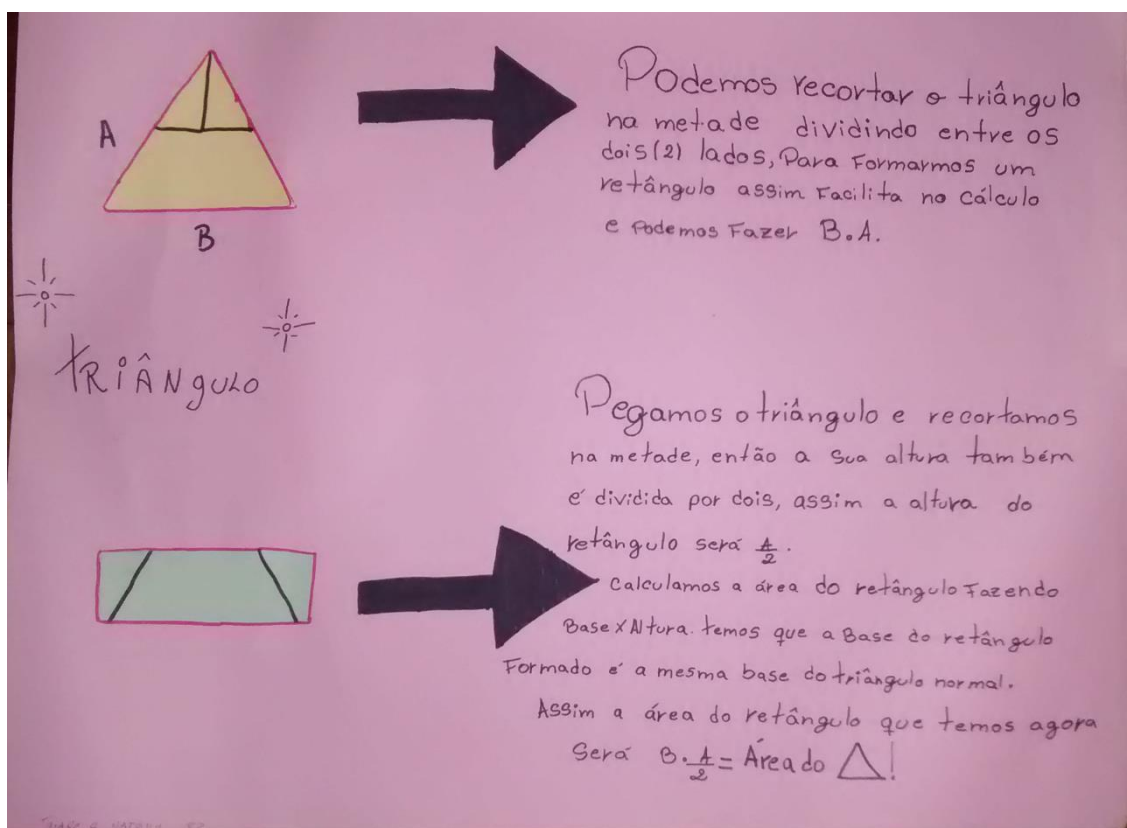 A
B
Podemos recortar o triângulo
na metade dividindo entre os
dois (2) lados, Para Formarmos um
retângulo assim Facilita no cálculo
e Podemos Fazer B.A.
tRiÂNguLo
Pegamos o triângulo e recortamos
na metade, então a sua altura também
é dividida por dois, assim a altura do
retângulo será A/2.
Calculamos a área do retângulo Fazendo
Base x Altura. temos que a Base do retângulo
Formado é a mesma base do triângulo normal.
Assim a área do retângulo que temos agora
Será B.A/2 = Área do △!